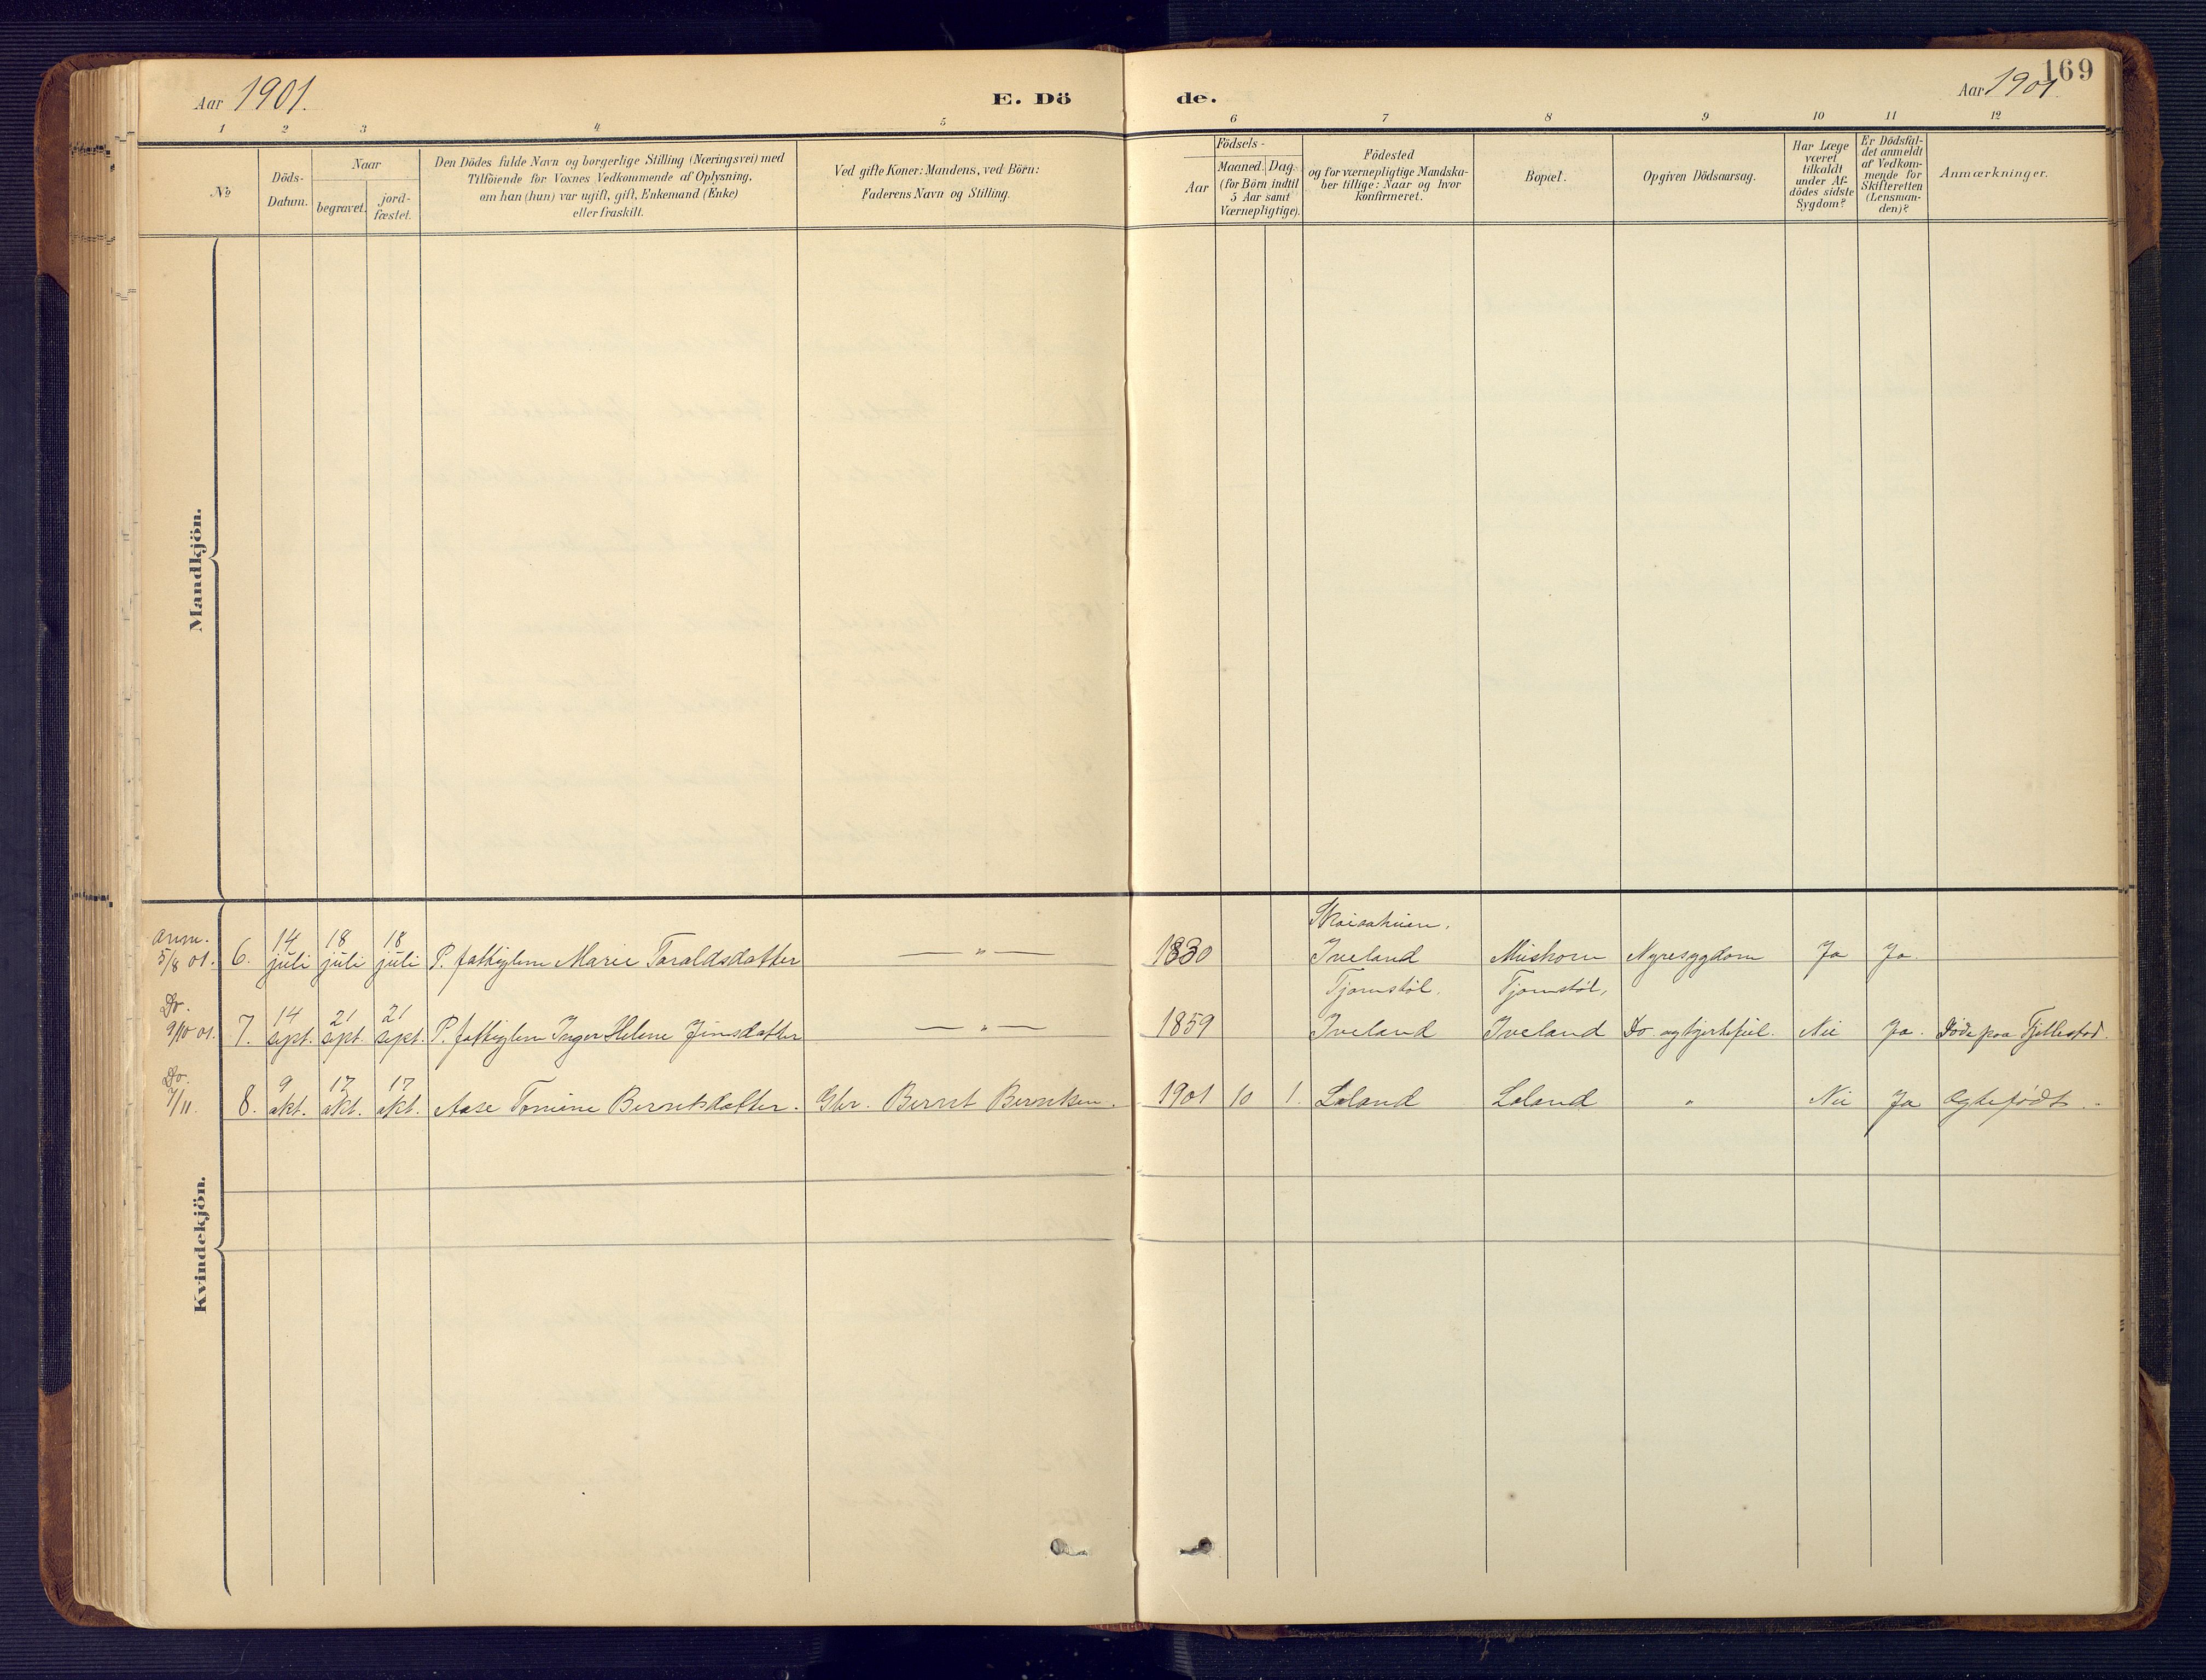 169
Aar 1901. E. Dö de. Aar 1901
1 2 3 4 5 6 7 8 9 10 11 12
No
Döds-
Datum.
Naar
begravet.
jord-
fæstet.
Den Dödes fulde Navn og borgerlige Stilling (Næringsvei) med
Tilföiende for Voxnes Vedkommende af Oplysning,
om han (hun) var ugift, gift, Enkemand (Enke)
eller fraskilt.
Ved gifte Koner: Mandens, ved Börn:
Faderens Navn og Stilling.
Födsels-
Aar
Maaned. Dag.
(for Börn indtil
5 Aar samt
Værnepligtige).
Födested
og for værnepligtige Mandska-
ber tillige: Naar og hvor
konfirmeret.
Bopæl.
Opgiven Dödsaarsag.
Har Læge
været
tilkaldt
under Af-
dödes sidste
Sygdom?
Er Dödsfal-
det anmeldt
af Vedkom-
mende for
Skifteretten
(Lensman-
den)?
Anmærkninger.
Mandkjön.
Kvindekjön.
Anm. 14 18 18
5/8 01. 6. juli juli juli P. fattiglem Marie Taraldsdatter — „ — 1830 Iveland Mushorn Nyresygdom Ja Ja.
Do. 14 21 21 Tjomstøl. Tjomstøl,
9/10 01. 7. sept. sept. sept. P. fattiglem Inger Helene Jensdatter — „ — 1859 Iveland Iveland Do og hjertefeil. Nei Ja. Døde paa Fjellestad.
Do. 9 17 17
7/11. 8. okt. okt. okt. Aase Tomine Berntsdatter. Gbr. Bernt Berntsen. 1901 10 1. Loland Loland „ Nei Ja Ægtefødt.